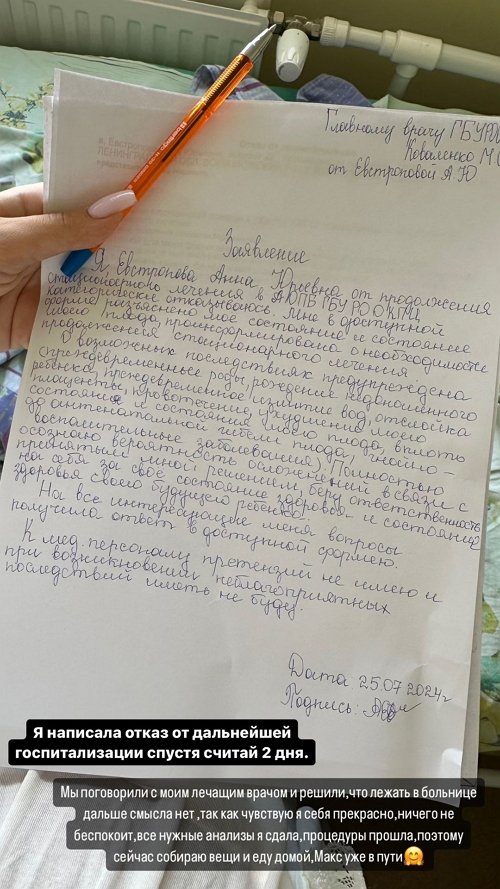 Главному врачу ГБУ РО
Коваленко М.С
от Евстроповой А Ю
Заявление
Я, Евстропова Анна Юрьевна от продолжения
стационарного лечения в АОПБ ГБУ РО ОКПЦ
категорически отказываюсь. Мне в доступной
форме разъяснено мое состояние и состояние
моего плода, проинформирована о необходимости
продолжения стационарного лечения
О возможных последствиях предупреждена
(преждевременные роды, рождение недоношенного
ребенка, преждевременное излитие вод, отслойка
плаценты, кровотечение, ухудшение моего
состояние и состояния моего плода, вплоть
до антенатальной гибели плода, гнойно-
воспалительные заболевания). Полностью
осознаю вероятность осложнений в связи с
принятым мной решением, беру ответственность
на себя за своё состояние здоровья и состояние
здоровья своего будущего ребенка.
На все интересующие меня вопросы
получила ответ в доступной форме.
К мед. персоналу претензий не имею и
при возникновении неблагоприятных
последствий иметь не буду.
Дата: 25.07.2024г
Подпись:
Я написала отказ от дальнейшей
госпитализации спустя считай 2 дня.
Мы поговорили с моим лечащим врачом и решили,что лежать в больнице
дальше смысла нет ,так как чувствую я себя прекрасно,ничего не
беспокоит,все нужные анализы я сдала,процедуры прошла,поэтому
сейчас собираю вещи и еду домой,Макс уже в пути🤗